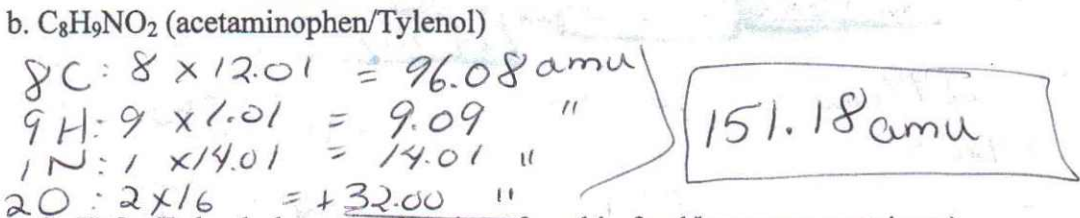 b. C₈H₉NO₂ (acetaminophen/Tylenol)
8C: 8 x 12.01 = 96.08 amu
9H: 9 x 1.01 = 9.09 "
1N: 1 x 14.01 = 14.01 "
2O: 2 x 16 = + 32.00 "
151.18 amu